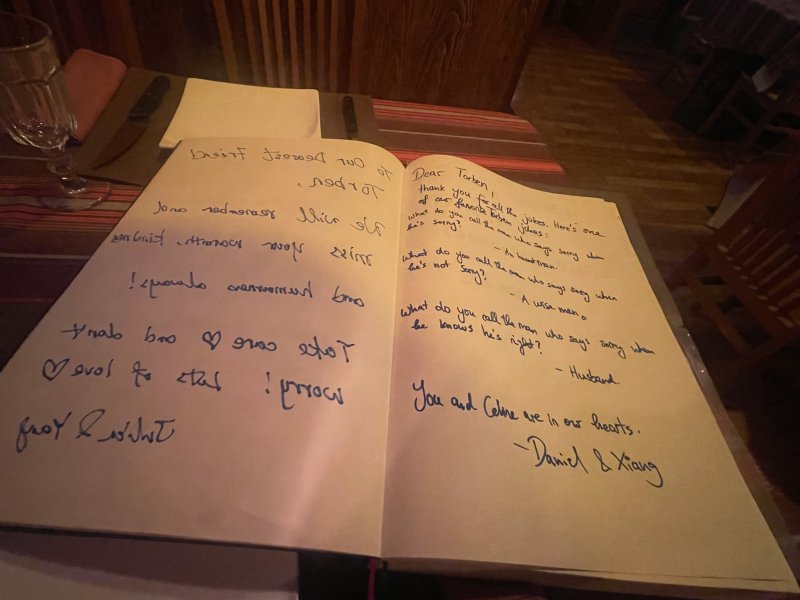 To Our Dearest Friend
Torben,
We will remember and
miss your warmth, kindness
and humourness always!
Take care ♡ and don't
worry! Lots of love ♡
& Yang
Dear Torben!
thank you for all the jokes. Here's one
of our favorite Torben jokes:
What do you call the man who says sorry when
he's sorry?
- An honest man.
What do you call the man who says sorry when
he's not sorry?
- A wise man.
What do you call the man who says sorry when
he knows he's right?
- Husband.
You and Celine are in our hearts.
- Daniel & Xiang